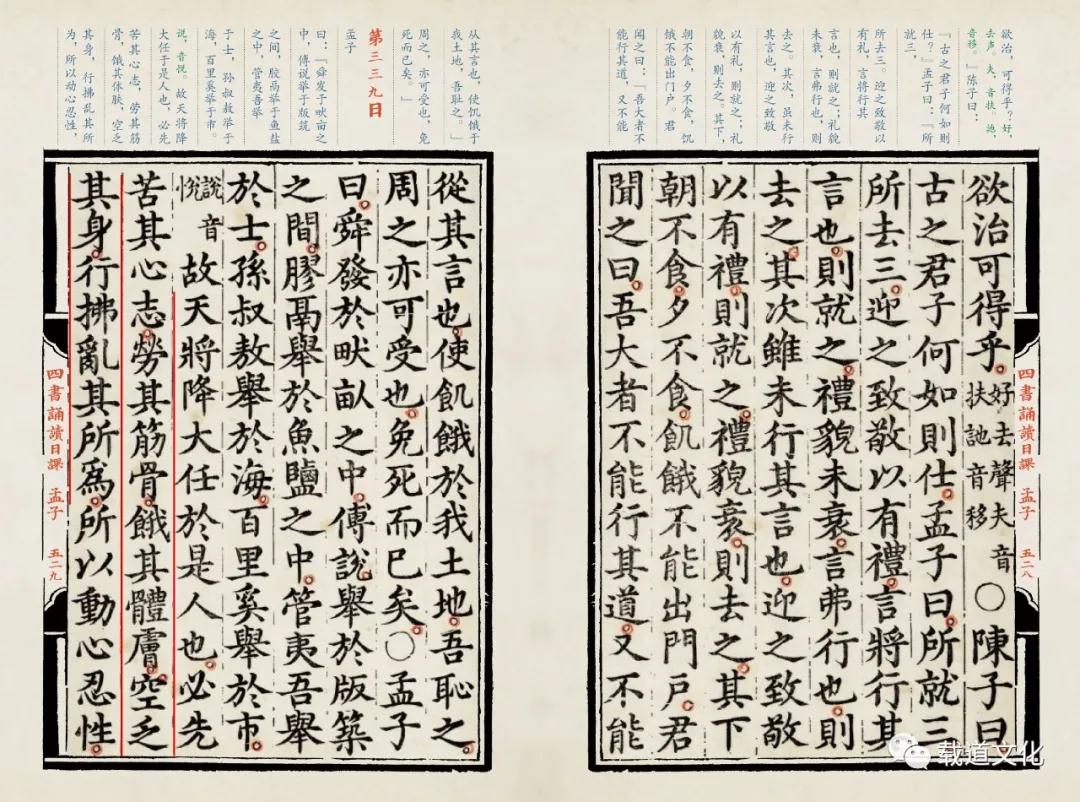 欲治,可得乎?好,
去声。夫,音扶。訑,
音移。』陈子曰:
『古之君子何如则
仕?』孟子曰:『所
就三,
所去三。迎之致敬以
有礼,言将行其
言也,则就之;礼貌
未衰,言弗行也,则
去之。其次,虽未行
其言也,迎之致敬
以有礼,则就之;礼
貌衰,则去之。其下,
朝不食,夕不食,饥
饿不能出门户。君
闻之曰:『吾大者不
能行其道,又不能
欲治可得乎。好去聲夫音扶訑音移○陳子曰
古之君子何如則仕。孟子曰。所就三
所去三。迎之致敬以有禮。言將行其
言也。則就之。禮貌未衰。言弗行也。則
去之。其次雖未行其言也。迎之致敬
以有禮。則就之。禮貌衰。則去之。其下
朝不食。夕不食。飢餓不能出門戶。君
聞之曰。吾大者不能行其道。又不能
四書誦讀日課 孟子 五二八
从其言也,使饥饿于
我土地,吾耻之。』
周之,亦可受也,免
死而已矣。』
第三三九日
孟子
曰:『舜发于畎亩之
中,傅说举于版筑
之间,胶鬲举于鱼盐
之中,管夷吾举
于士,孙叔敖举于
海,百里奚举于市。
说,音悦。故天将降
大任于是人也,必先
苦其心志,劳其筋
骨,饿其体肤,空乏
其身,行拂乱其所
为,所以动心忍性,
從其言也。使飢餓於我土地。吾恥之。
周之亦可受也。免死而已矣。○孟子
曰。舜發於畎畝之中。傅說舉於版築
之間。膠鬲舉於魚鹽之中。管夷吾舉
於士。孫叔敖舉於海。百里奚舉於市。
說音悅故天將降大任於是人也。必先
苦其心志。勞其筋骨。餓其體膚。空乏
其身。行拂亂其所為。所以動心忍性。
四書誦讀日課 孟子 五二九
载道文化